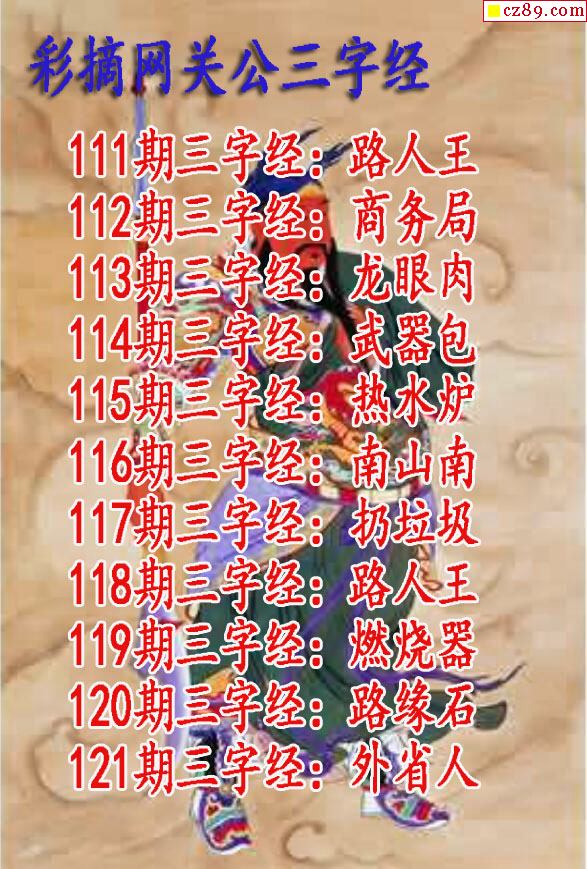 cz89.com
彩摘网关公三字经
111期三字经：路人王
112期三字经：商务局
113期三字经：龙眼肉
114期三字经：武器包
115期三字经：热水炉
116期三字经：南山南
117期三字经：扔垃圾
118期三字经：路人王
119期三字经：燃烧器
120期三字经：路缘石
121期三字经：外省人